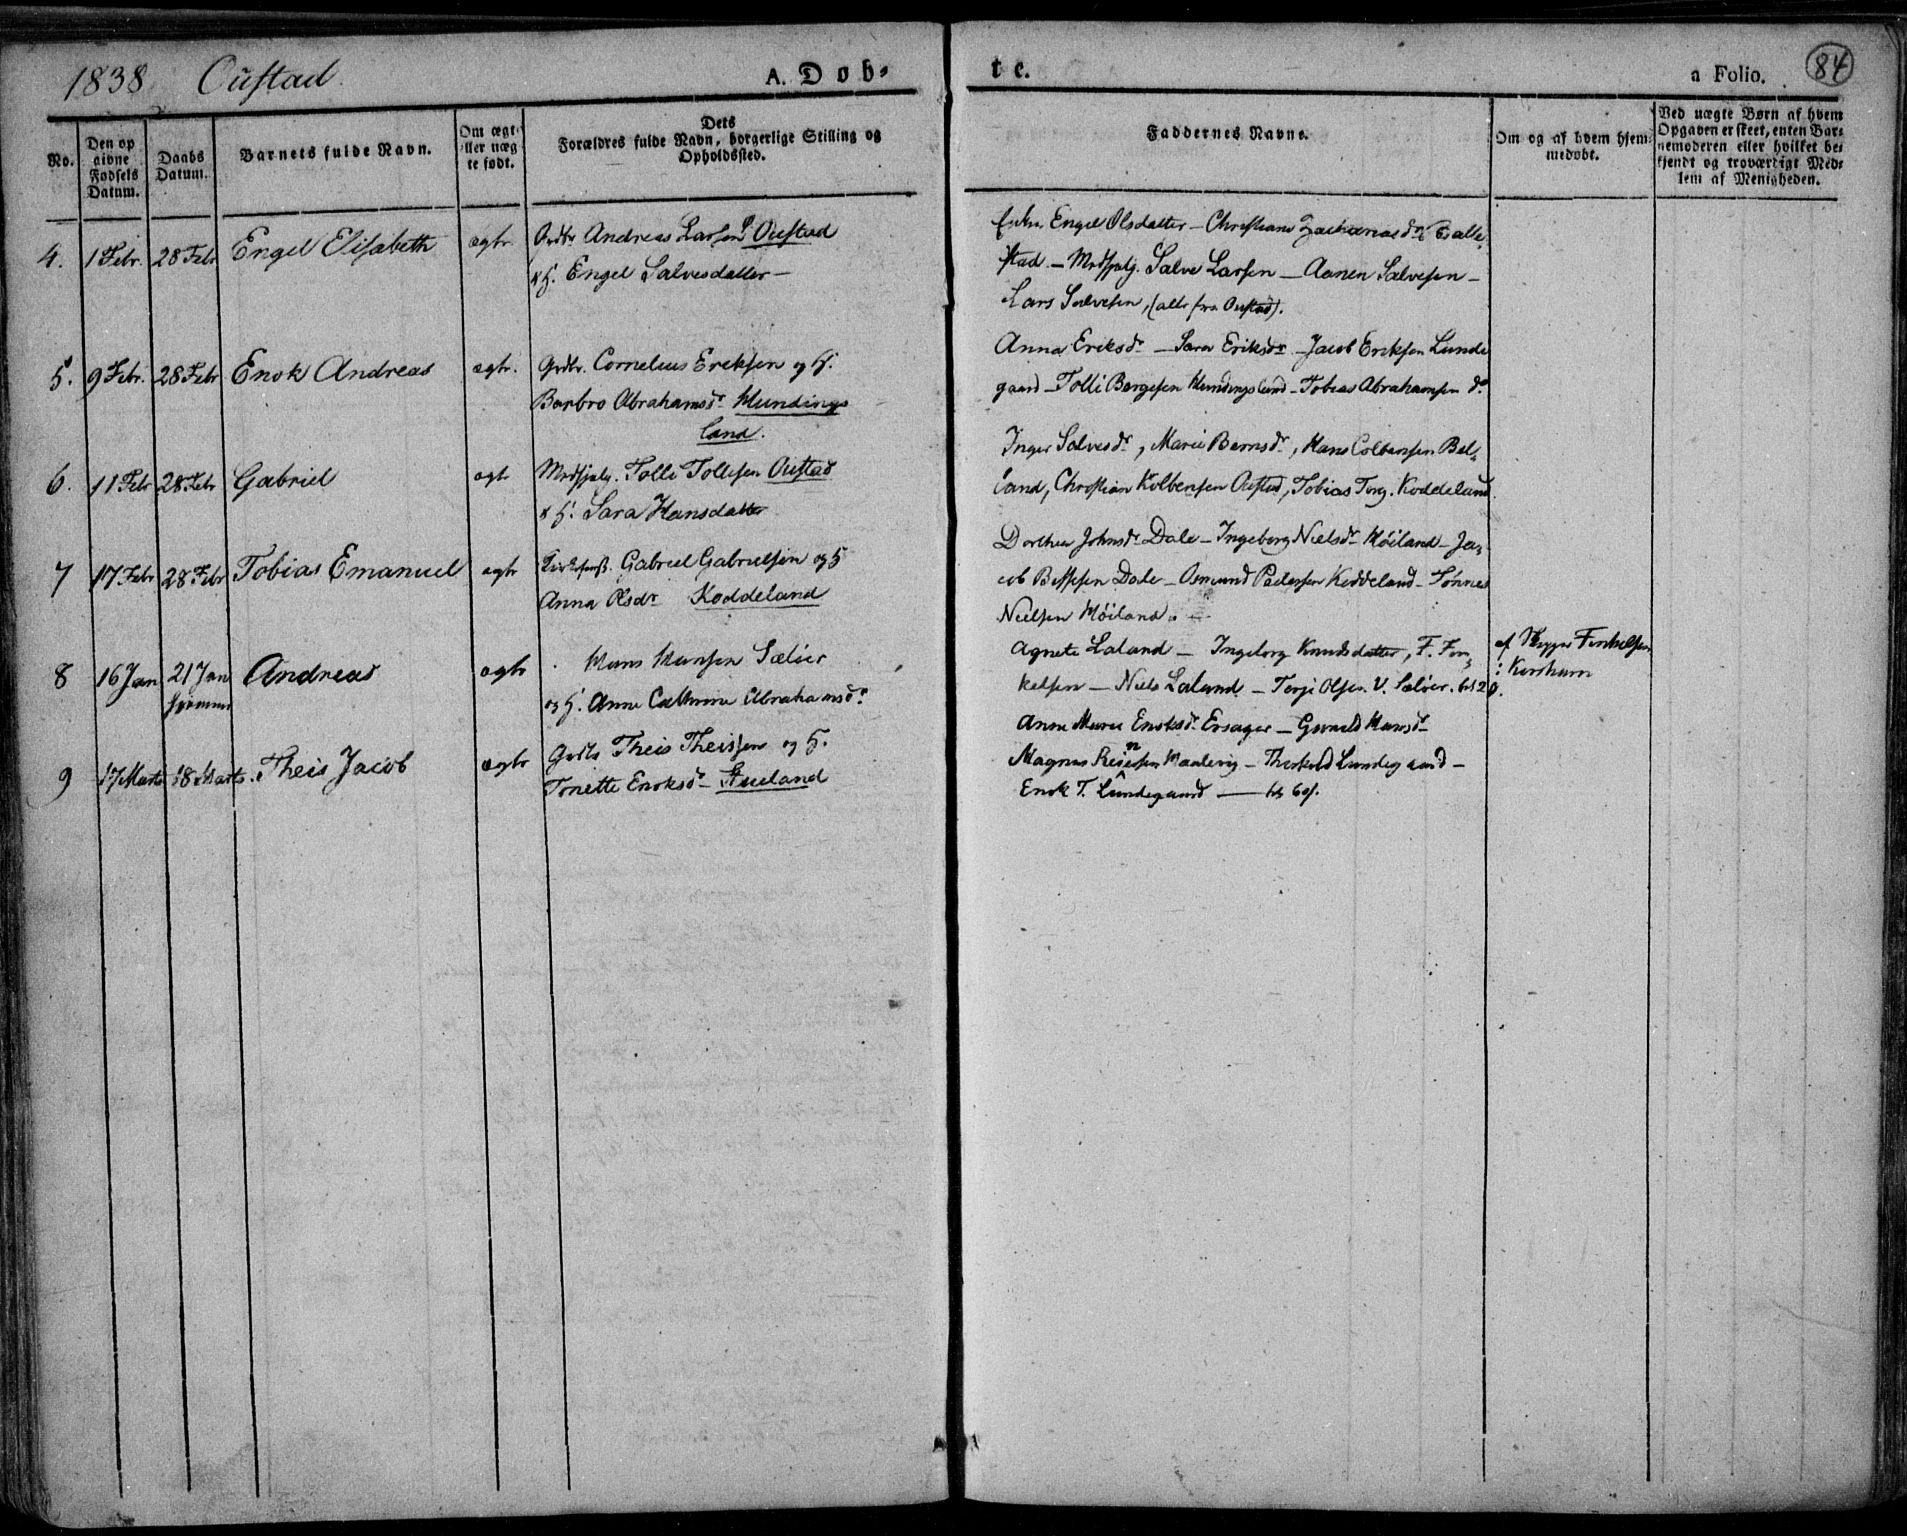 1838 Oustad. A. Døb-
te. a Folio. 84
No.
Den op
givne
Fødsels
Datum.
Daabs
Datum.
Barnets fulde Navn.
Om ægte
eller uæg
te født.
Dets
Forældres fulde Navn, borgerlige Stilling og
Opholdssted.
Faddernes Navne.
Om og af hvem hjem-
medøbt.
Ved uægte Børn af hvem
Opgaven er skeet, enten Bar-
nemoderen eller hvilket be-
kjendt og troværdigt Med-
lem af Menigheden.
4. 1 Febr. 28 Febr Engel Elisabeth ægte Grdbr Andreas Larsen Oustad
& H. Engel Salvesdatter –
Engel Olsdatter – Christiane Zachariasdr
stad. – Salve Larsen – Aanen Salvesen –
Lars Salvesen, (alle fra Oustad).
5. 9 Febr. 28 Febr Enok Andreas ægte. Grdbr. Cornelius Eriksen og H.
Barbro Abrahamsdr Hundings
land.
Anna Eriksdr – Sara Eriksdr – Jacob Eriksen Lunde
gaard – Tolli Børgesen Hundingsland – Tobias Abrahamsen do
6. 11 Febr 28 Febr Gabriel ægte Tolli Tollisen Oustad
& H. Sara Hansdatter
Inger Salvesdr, Marie Berntsdr, Hans Colbensen Bel-
land, Christian Kolbensen Oustad, Tobias Torg. Koddeland.
7 17 Febr 28 Febr Tobias Emanuel ægte Gabriel Gabrielsen og H
Anna Olsdr Koddeland
Dorthea Johnsdr Dale – Ingeborg Nielsdr Høiland – Ja-
cob Dale – Osmund Pedersen Koddeland – Tønnes
Nielsen Høiland. –
8 16 Jan 21 Jan Andreas ægte Hans Hansen Sæløer
hjemme
og H. Anne Cathrine Abrahamsdr
Agnete Laland – Ingeborg Knudsdatter, F. Ten-
kelsen – Niels Laland – Terje Olsen V. Sæløer.
af Skipper Tenkelsen
i Korshavn
9 17 Marts 18 Marts. Theis Jacob ægte Grdbr Theis Theissen og H.
Tonette Enoksdr – Stueland
Anne Marie Enoksdr Ersager – Hansdr
Magnus Reiersen Maalevig – Lundegaard –
Enok T. Lundegaard –